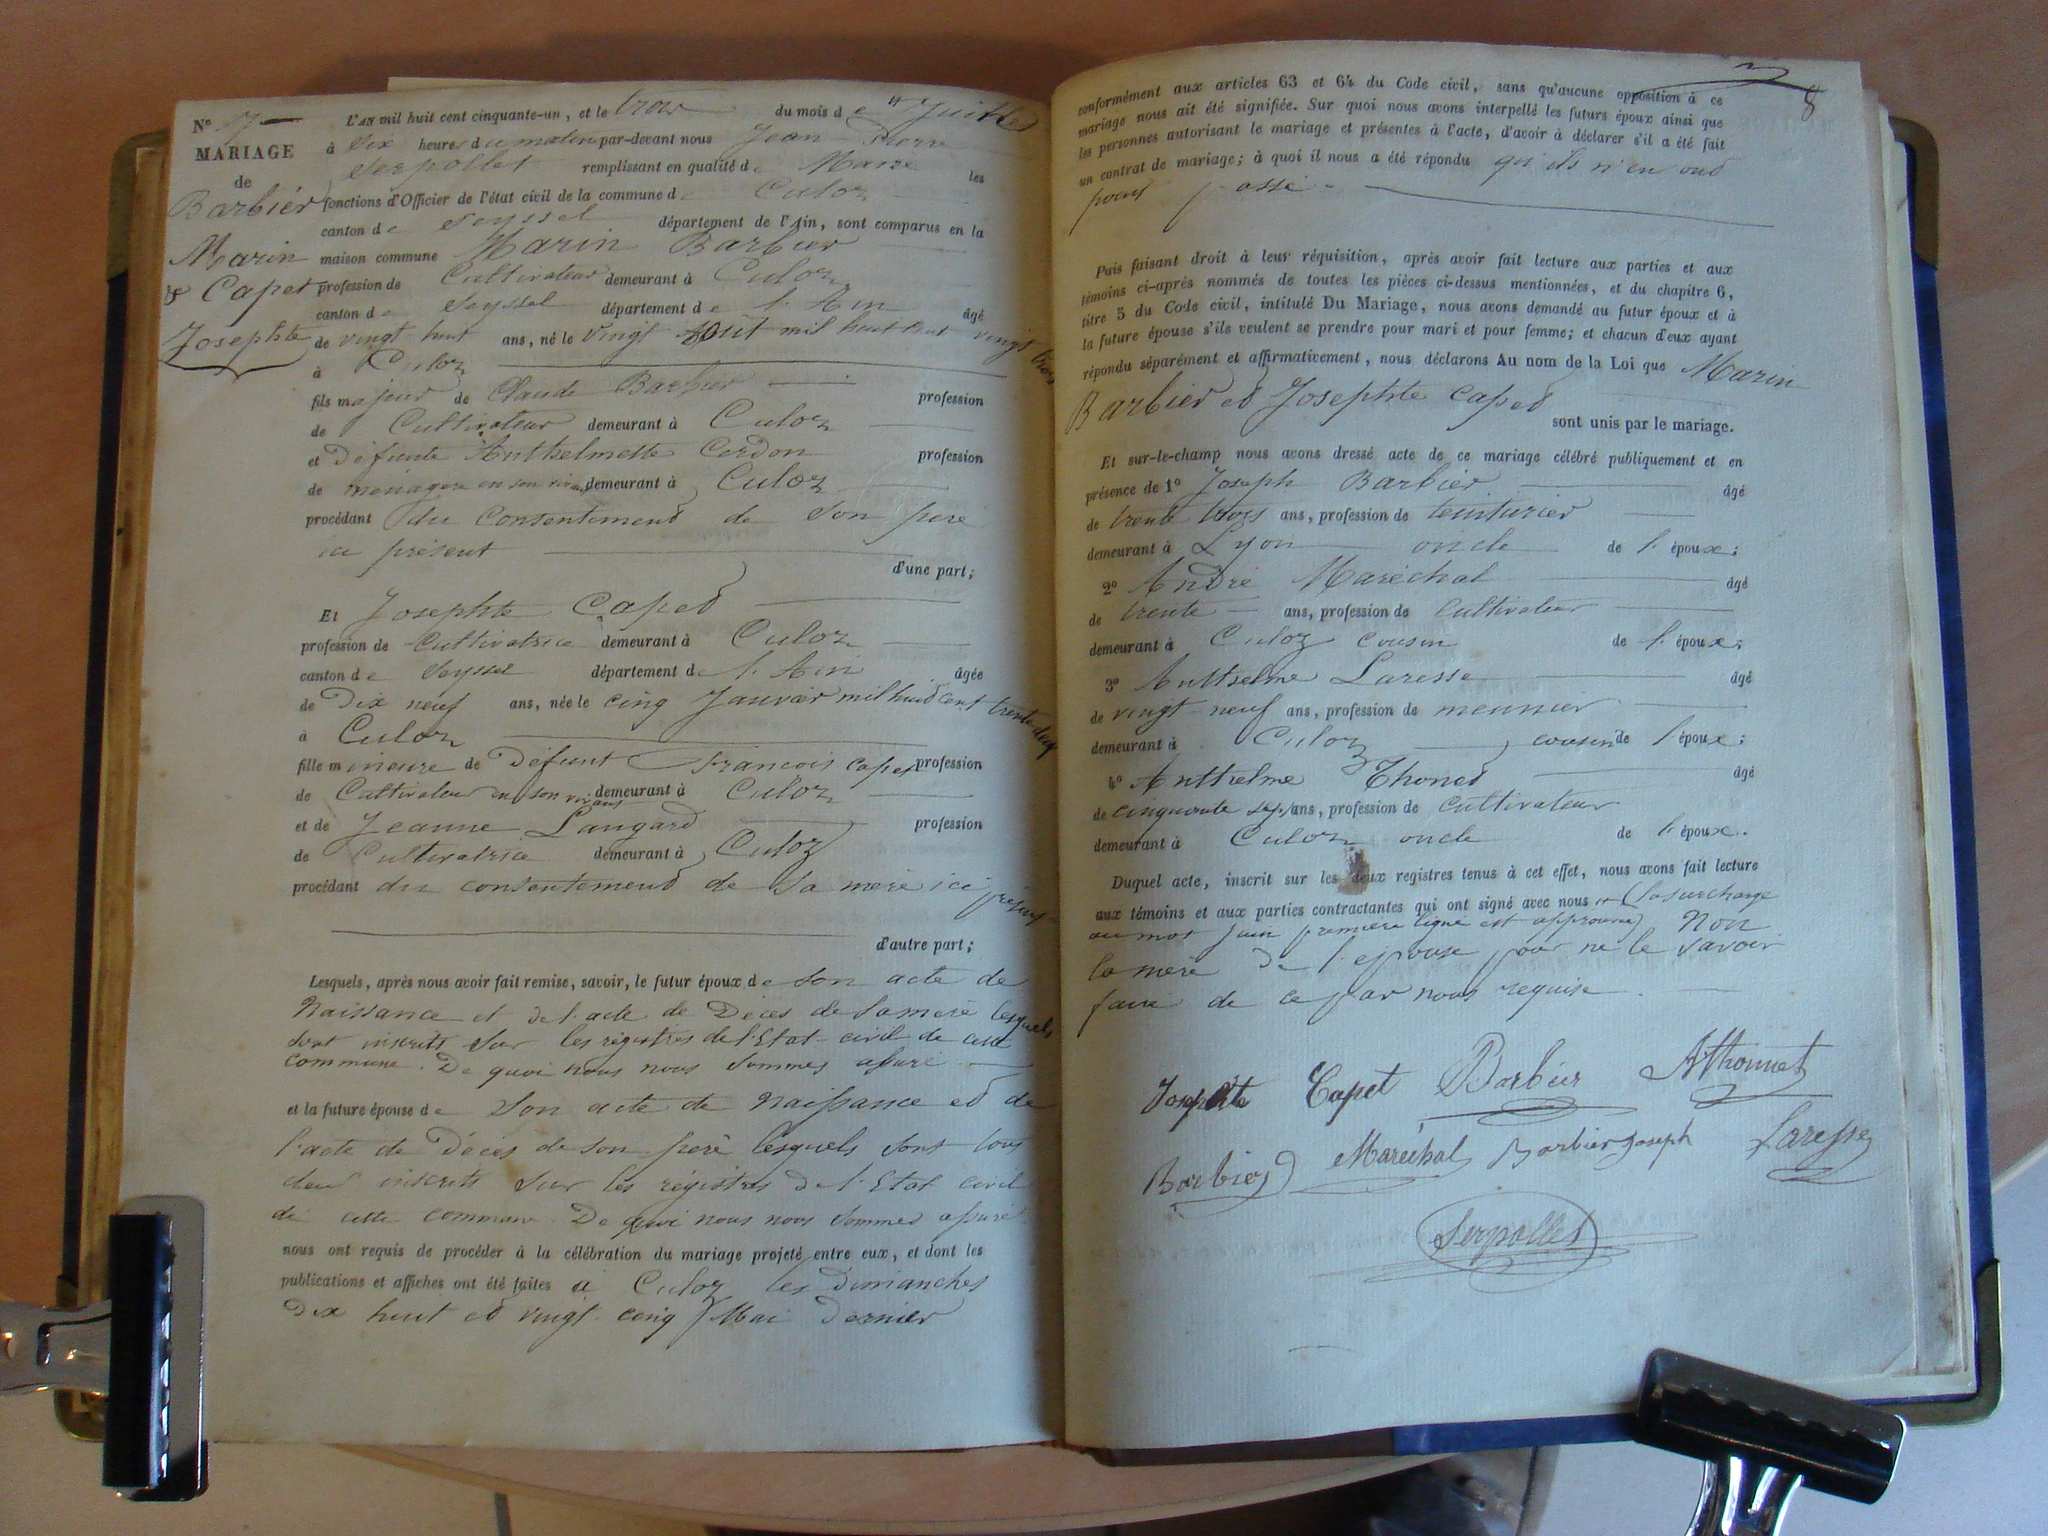 N° 17
MARIAGE
de
Barbier
Marin
& Capet
Josephte
L'AN mil huit cent cinquante-un, et le trois du mois de Juillet
à Dix heures du matin par-devant nous Jean Pierre
Serpollet remplissant en qualité de Maire les
fonctions d'Officier de l'état civil de la commune de Culoz
canton de Seyssel département de l'Ain, sont comparus en la
maison commune Marin Barbier
profession de Cultivateur demeurant à Culoz
canton de Seyssel département de l'Ain âgé
de vingt huit ans, né le vingt Août mil huit cent vingt trois
à Culoz
fils majeur de Claude Barbier profession
de Cultivateur demeurant à Culoz
et Défunte Anthelmette Cerdon profession
de menagere en son vivant demeurant à Culoz
procédant du consentement de Son pere
ici présent
d'une part;
Et Josephte Capet
profession de Cultivatrice demeurant à Culoz
canton de Seyssel département de l'Ain âgée
de Dix neuf ans, née le cinq Janvier mil huit cent trente deux
à Culoz
fille mineure de Défunt François Capet profession
de Cultivateur en son vivant demeurant à Culoz
et de Jeanne Langard profession
de Cultivatrice demeurant à Culoz
procédant du consentement de Sa mere ici présent
d'autre part;
Lesquels, après nous avoir fait remise, savoir, le futur époux de son acte de
Naissance et de l'acte de Déces de Sa mere lesquels
sont inscrits sur les régistres de l'Etat-civil de cette
commune. De quoi nous nous sommes assuré
et la future épouse de Son acte de Naissance et de
l'acte de Décès de son pere lesquels sont tous
deux inscrits sur les registres de l'Etat civil
de cette commune. De quoi nous nous sommes assuré
nous ont requis de procéder à la célébration du mariage projeté entre eux, et dont les
publications et affiches ont été faites à Culoz les dimanches
Dix huit et vingt-cinq Mai Dernier
8
conformément aux articles 63 et 64 du Code civil, sans qu'aucune opposition à ce
mariage nous ait été signifiée. Sur quoi nous avons interpellé les futurs époux ainsi que
les personnes autorisant le mariage et présentes à l'acte, d'avoir à déclarer s'il a été fait
un contrat de mariage; à quoi il nous a été répondu qu'ils n'en ont
point passé
Puis faisant droit à leur réquisition, après avoir fait lecture aux parties et aux
témoins ci-après nommés de toutes les pièces ci-dessus mentionnées, et du chapitre 6,
titre 5 du Code civil, intitulé Du Mariage, nous avons demandé au futur époux et à
la future épouse s'ils veulent se prendre pour mari et pour femme; et chacun d'eux ayant
répondu séparément et affirmativement, nous déclarons Au nom de la Loi que Marin
Barbier et Josephte Capet
sont unis par le mariage.
Et sur-le-champ nous avons dressé acte de ce mariage célébré publiquement et en
présence de 1° Joseph Barbier âgé
de trente trois ans, profession de teinturier
demeurant à Lyon oncle de l'époux;
2° André Maréchal âgé
de trente ans, profession de Cultivateur
demeurant à Culoz cousin de l'époux;
3° Anthelme Laresse âgé
de vingt-neuf ans, profession de meunier
demeurant à Culoz cousin de l'époux;
4° Anthelme Thonet âgé
de cinquante sept ans, profession de cultivateur
demeurant à Culoz oncle de l'époux.
Duquel acte, inscrit sur les deux registres tenus à cet effet, nous avons fait lecture
aux témoins et aux parties contractantes qui ont signé avec nous (la surcharge
au mot Juin première ligne est approuvé) Non
la mere De l'epouse pour ne le Savoir
faire de ce par nous requise.
Josephte Capet Barbier AThonnet
Barbier Maréchal Barbier Joseph Laresse
Serpollet